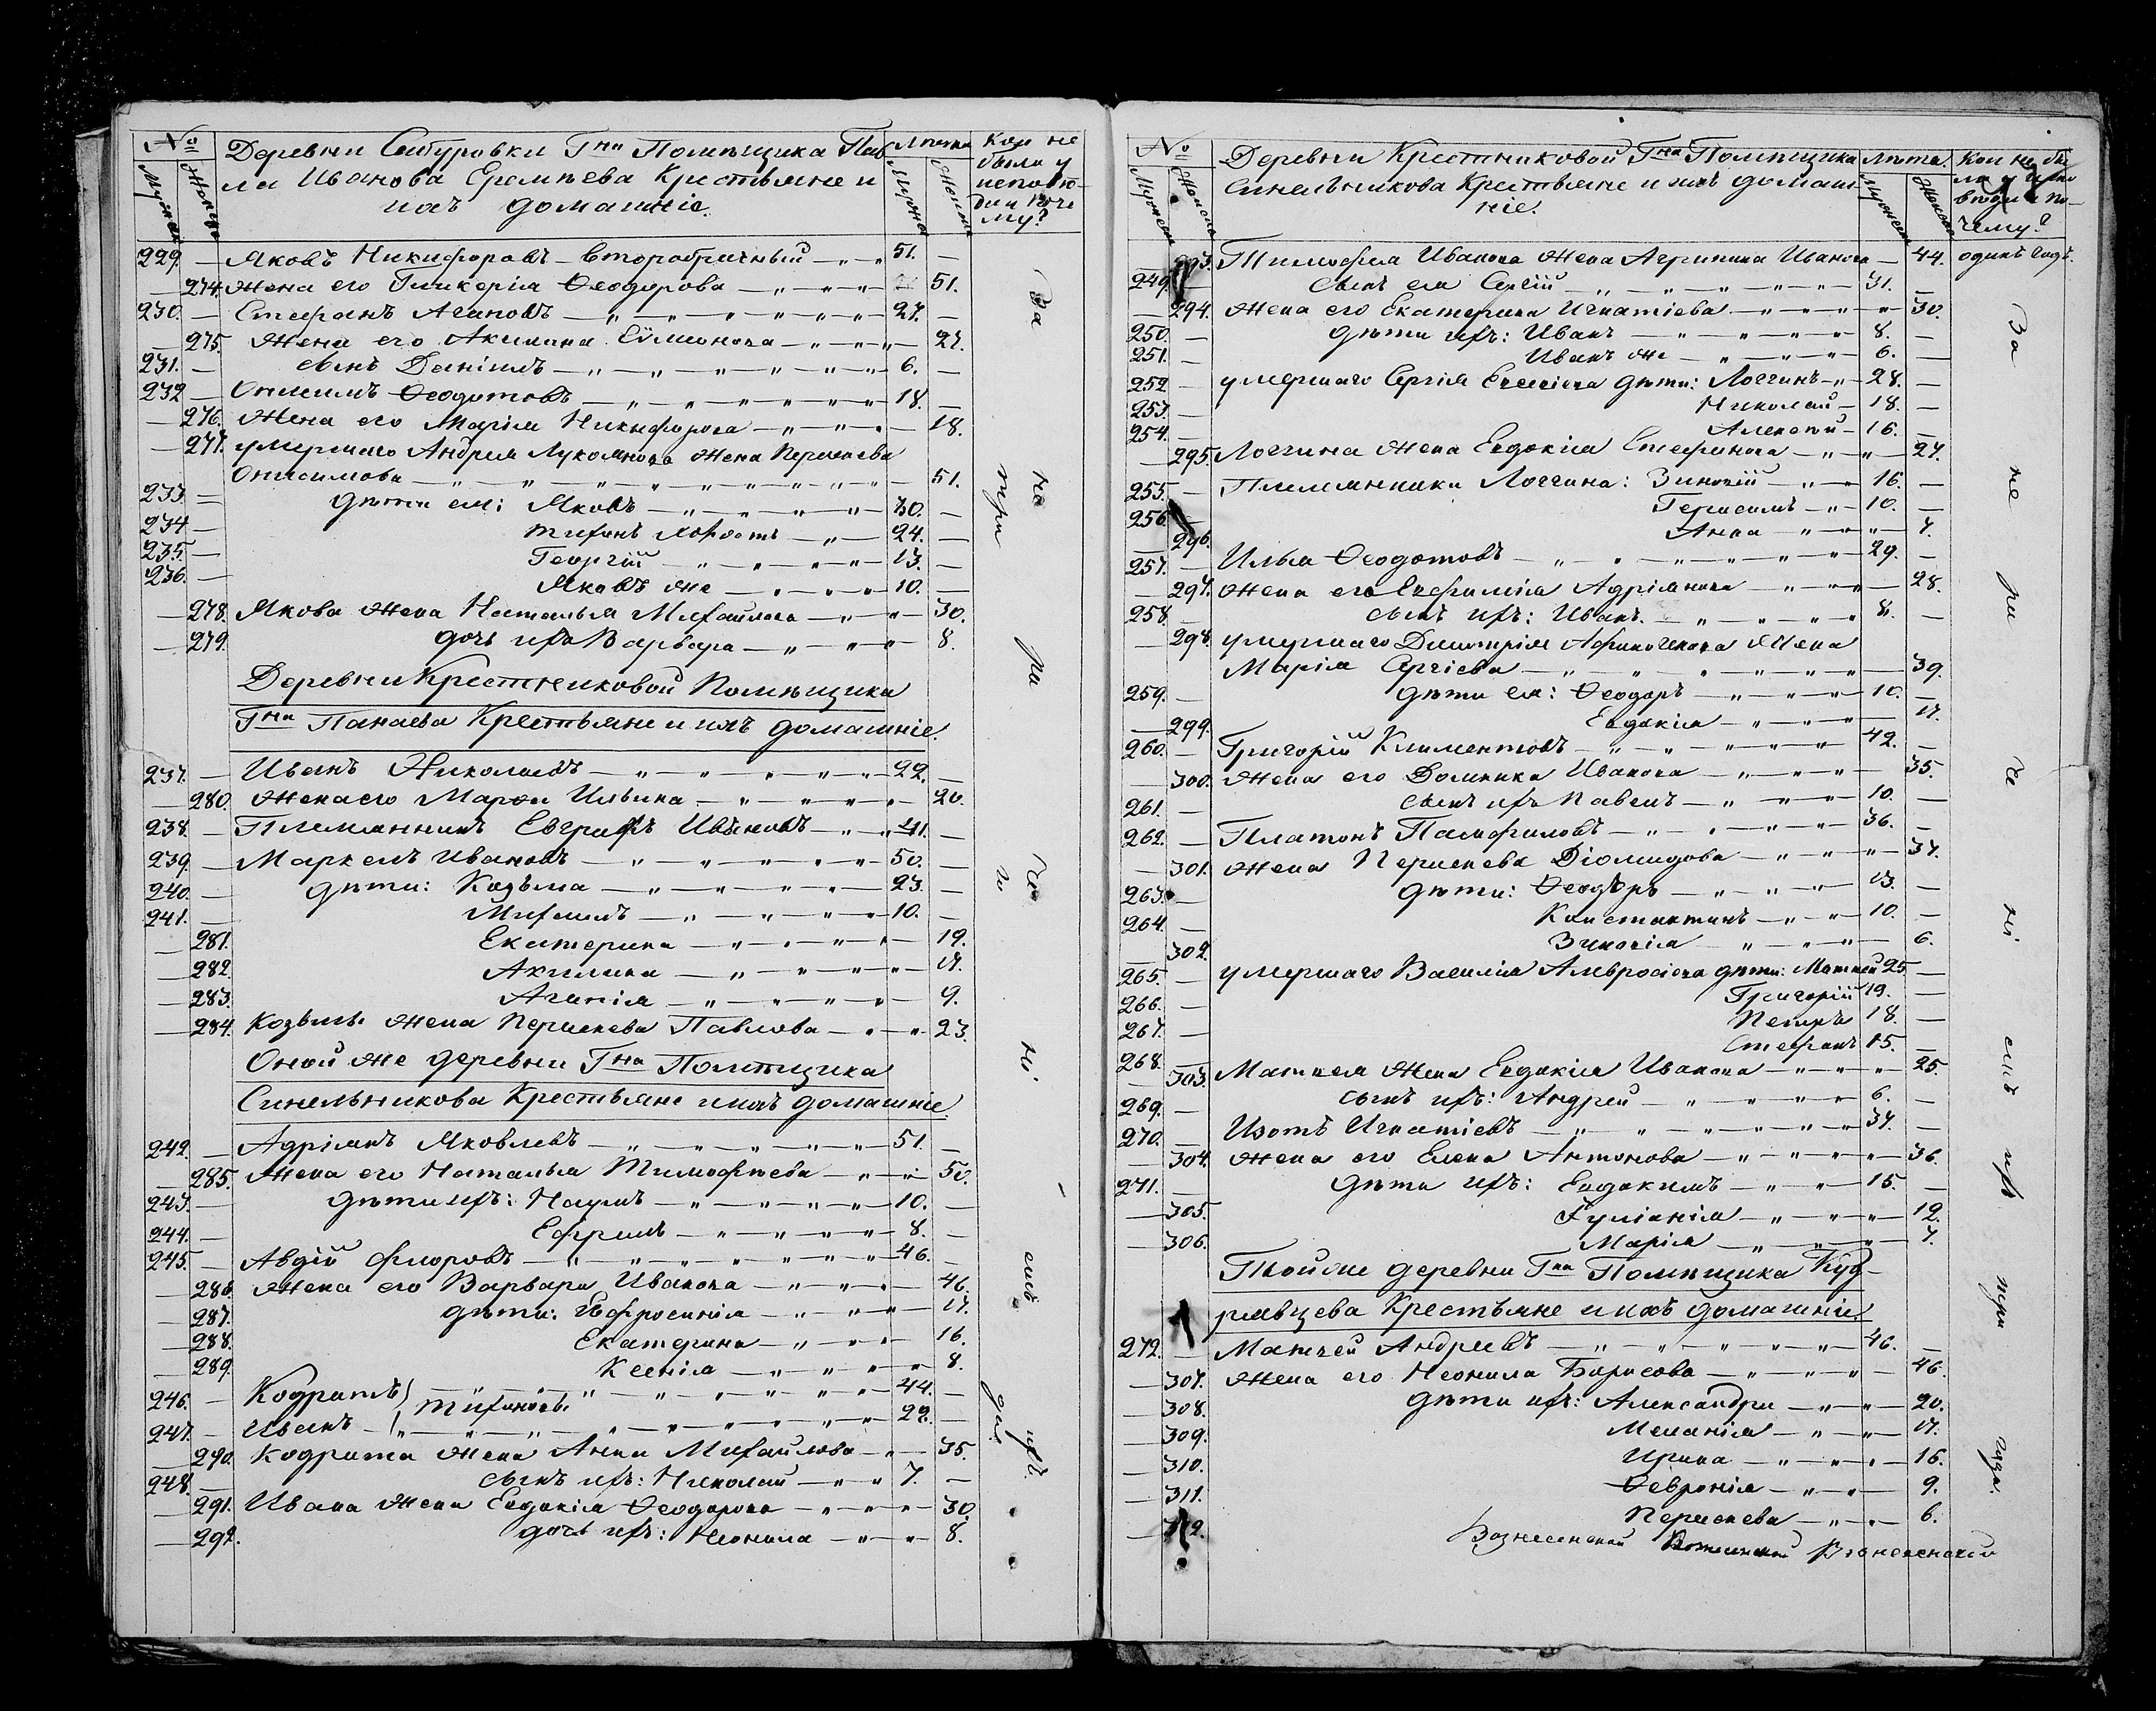 № Деревни Сатуровки Гна Помѣщика Пав Лѣта Кои не
ла Иванова Еремѣева Крестьяне и были у
ихъ домашніе. исповѣ-
Мужеска Женска Мужеска Женска ди и поче
му?
229. — Яковъ Никифоровъ — второбрачный — 51. —
— 274. Жена его Гликерія Ѳеодорова — 51.
230. — Стефанъ Агаповъ — 27. —
— 275. Жена его Акилина Сѵмеонова — 27.
231. — сынъ Даніилъ — 6. —
232 — Онисимъ Ѳеодотовъ — 18. —
— 276. Жена его Марія Никифорова — 18.
— 277. умершаго Андрея Лукоянова жена Параскева
Онисимова — 51.
233 — дѣти ея: Яковъ — 30. —
234 — Тихонъ холостъ — 24. —
235. — Георгій — 13. —
236. — Яковъ же — 10. —
— 278. Якова жена Наталья Михайлова — 30.
— 279. дочь ихъ Варвара — 8.
Деревни Крестниковой Помѣщика
Гна Панаева Крестьяне и ихъ домашніе.
237. — Иванъ Николаевъ — 22. —
— 280. Жена его Марѳа Ильина — 20.
238. — Племянникъ Евграфъ Ивановъ — 41. —
239. — Маркелъ Ивановъ — 50. —
240. — дѣти: Козьма — 23. —
241. — Михаилъ — 10. —
— 281. Екатерина — 19.
— 282. Акилина — 17.
— 283. Агапія — 9.
— 284. Козьмы жена Параскева Павлова — 23.
Оной же деревни Гна Помѣщика
Синельникова Крестьяне и ихъ домашніе.
242. — Адріанъ Яковлевъ — 51. —
— 285. Жена его Наталья Тимофѣева — 50.
243. — дѣти ихъ: Наумъ — 10. —
244. — Ефремъ — 8. —
245. — Авдій Флоровъ — 46. —
— 286. Жена его Варвара Иванова — 46.
— 287. дѣти: Евфросинія — 17.
— 288. Екатерина — 16.
— 289. Ксенія — 8.
246. — Кодратъ } Тихоновы — 44. —
247. — Иванъ — 22. —
— 290. Кодрата жена Анна Михайлова — 35.
248. — сынъ ихъ: Николай — 7. —
— 291. Ивана жена Евдокія Ѳеодорова — 30.
— 292. дочь ихъ: Неонила — 8.
За не ра че ні емъ ихъ
три го да
№ Деревни Крестниковой Гна Помѣщика Лѣта. Кои не бы
Синельникова Крестьяне и ихъ домаш- ли у испо
ніе. вѣди и по-
Мужеска Женска Мужеска Женска чему?
293. Тимофея Иванова жена Агрипина Иванова — 44. одинъ годъ.
249. — сынъ ея Сергій — 31. —
— 294. Жена его Екатерина Игнатіева — 30.
250. — дѣти ихъ: Иванъ — 8. —
251. — Иванъ же — 6. —
252 — умершаго Сергія дѣти: Логгинъ — 28. —
253. — Николай — 18. —
254. — Алексѣй — 16. —
— 295. Логгина жена Евдокія Стефанова — 27.
255. — Племянники Логгина: Зиновій — 16. —
256. — Герасимъ — 10. —
— 296. Анна — 7.
257. — Илья Ѳеодотовъ — 29. —
— 297. Жена его Евфимія Адріанова — 28.
258. — сынъ ихъ: Иванъ. — 8. —
— 298. умершаго Димитрія Афиногенова жена
Марія Сергіева — 39.
259. — дѣти ея: Ѳеодоръ — 10. —
— 299. Евдокія — 17.
260. — Григорій Климентовъ — 42. —
— 300. Жена его Домника Иванова — 35.
261. — сынъ ихъ Павелъ — 10. —
262. — Платонъ Памфиловъ — 36. —
— 301. Жена Параскева Діомидова — 37.
263. — дѣти: Ѳеодоръ — 13. —
264. — Константинъ — 10. —
— 302. Зиновія — 6.
265. — умершаго Василія Амвросіева дѣти: Матѳей 25 —
266. — Григорій 19. —
267. — Петръ 18. —
268. — Стефанъ 15. —
— 303. Матѳея жена Евдокія Иванова — 25.
269. — сынъ ихъ: Андрей — 6. —
270. — Изотъ Игнатіевъ — 37. —
— 304. Жена его Елена Антонова — 36.
271. — дѣти ихъ: Евдокимъ — 15. —
— 305. Іуліанія — 12.
— 306. Марія — 7.
Той же деревни Гна Помѣщика Куд-
рявцева Крестьяне и ихъ домашніе.
272. — Матѳей Андреевъ — 46. —
— 307. Жена его Неонила Борисова — 46.
— 308. дѣти ихъ: Александра — 20.
— 309. Меланія — 17.
— 310. Ирина — 16.
— 311. Ѳевронія — 9.
— 312. Параскева — 6.
Вознесенской Вознесенской Вознесенскій
За не ра че ні емъ ихъ три года.